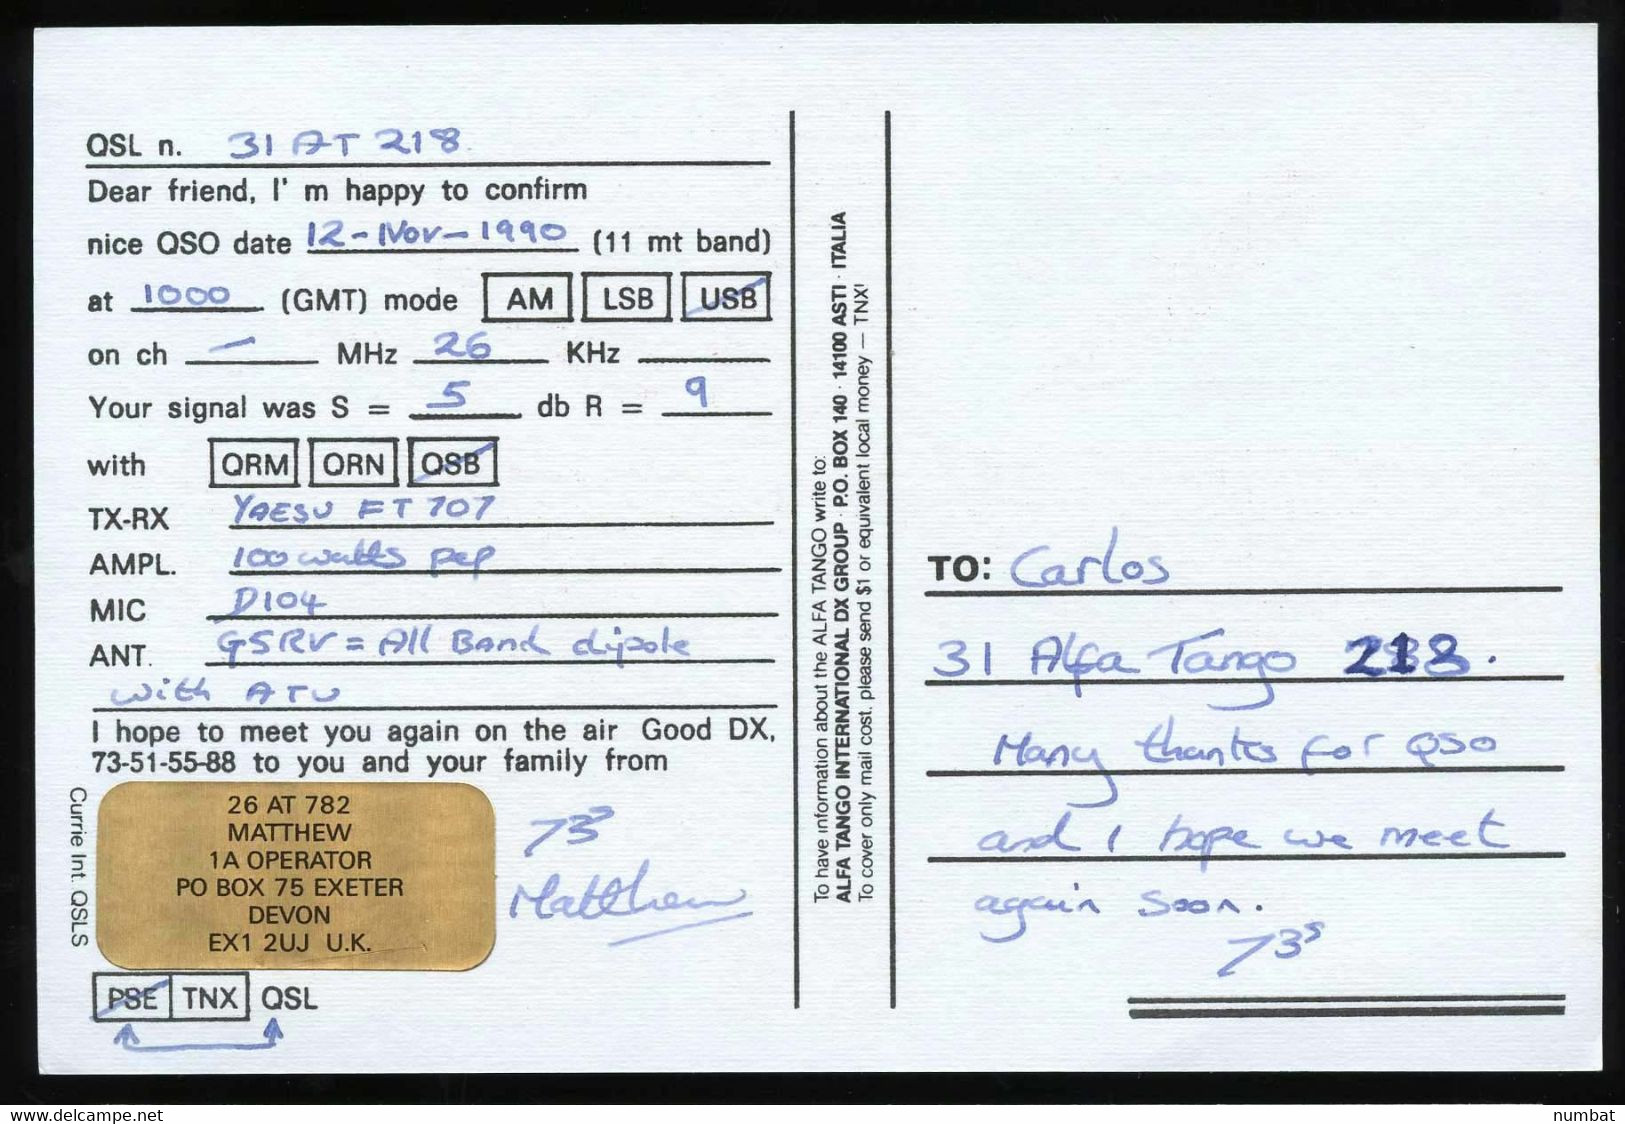 QSL n. 31 AT 218
Dear friend, I' m happy to confirm
nice QSO date 12-Nov-1990 (11 mt band)
at 1000 (GMT) mode AM LSB USB
on ch — MHz 26 KHz
Your signal was S = 5 db R = 9
with QRM QRN QSB
TX-RX YAESU FT 707
AMPL. 100 watts pep
MIC D104
ANT. G5RV = All Band dipole
with ATU
I hope to meet you again on the air Good DX,
73-51-55-88 to you and your family from
26 AT 782
MATTHEW
1A OPERATOR
PO BOX 75 EXETER
DEVON
EX1 2UJ U.K.
73s
Matthew
Currie Int. QSLS
PSE TNX QSL
To have information about the ALFA TANGO write to:
ALFA TANGO INTERNATIONAL DX GROUP · P.O. BOX 140 · 14100 ASTI · ITALIA
To cover only mail cost, please send $1 or equivalent local money — TNX!
TO: Carlos
31 Alfa Tango 218.
Many thanks for QSO
and I hope we meet
again soon.
73s
www.delcampe.net
numbat